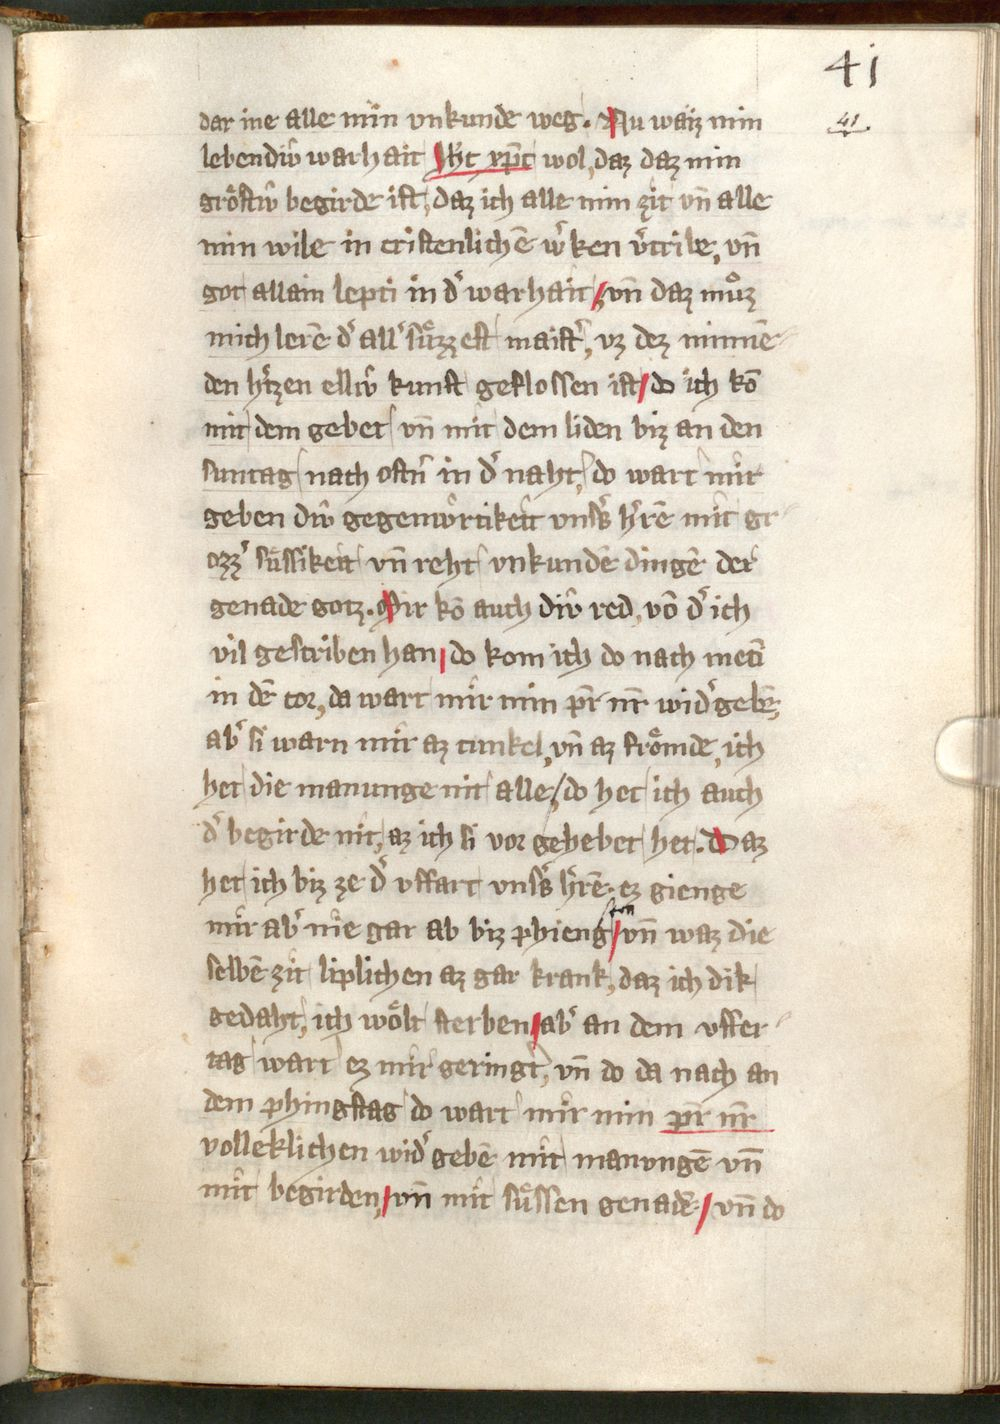 41
41
dar ine alle min vnkunde weg. Nu waiz min
lebendiv̂ warhait Iħc xp̄c wol, daz daz min
grôstiv̂ begirde ist, daz ich alle min zit vn̄ alle
min wile in cristenlichē w͛ken v͛tribe, vn̄
got allain lepti in d͛ warhait, vn̄ daz mu̇ͦz
mich lerē d͛ all͛ sůzzest maist͛, vz dez minnē
den h͛tzen elliv̂ kunst geflossen ist do ich kō
mit dem gebet vn̄ mit dem liden biz an den
suntag nach ostn̄ in d͛ naht, do wart mir
geben div̂ gegenwv̂rtikeit vns͛s h͛rē mit gr
ozz͛ sůssikeit vn̄ reht vnkunde dingē der
genade gotz. Mir kō auch div̂ red, vō d͛ ich
vil gescriben han, do kom ich do nach meti
in dē cor, da wart mir min pr̄ nr̄ wid͛ gebē,
ab͛ si warn mir az tunkel, vn̄ az frômde, ich
het die manunge nit alle, do het ich auch
d͛ begirde nit, az ich si vor gehebet het. Daz
het ich biz ze d͛ vffart vns͛s h͛rē. ez gienge
mir ab͛ nie gar ab biz phieng sten vn̄ waz die
selbē zit liplichen az gar krank, daz ich dik
gedaht, ich wôlt sterben, ab͛ an dem vffer
tag wart ez mir geringt, vn̄ do da nach an
dem phingstag do wart mir min pr̄ nr̄
volleklichen wid͛ gebē mit manvngē vn̄
mit begirden, vn̄ mit sůssen genadē, vn̄ do